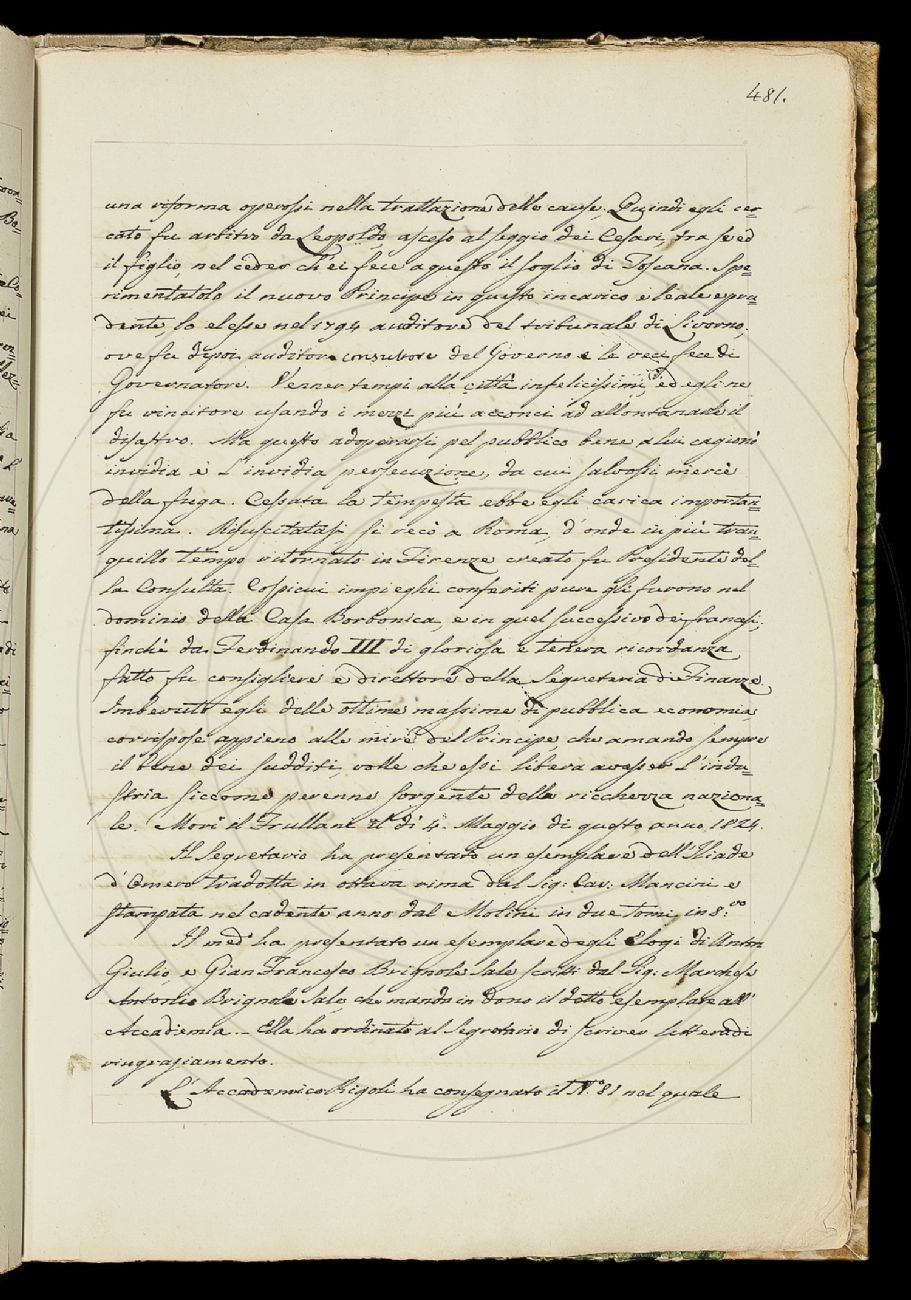 481.
una riforma operossi nella trattazione delle cause. Quindi egli cer=
cato fu arbitro da Leopoldo, asceso al seggio dei Cesari, tra se ed
il figlio, nel ceder ch'ei fece a questo il soglio di Toscana. Spe=
rimentatolo il nuovo Principe in questo incarico e leale e pru=
dente, lo elesse nel 1794 auditore del tribunale di Livorno,
ove fu dipoi auditore consultore del Governo e le veci fece di
Governatore. Venner tempi alla città infelicissimi, ed egli ne
fu vincitore usando i mezzi più acconci ad allontanarle il
disastro. Ma questo adoperarsi pel pubblico bene a lui cagionò
invidia e l'invidia persecuzione, da cui salvossi mercè
della fuga. Cessata la tempesta ebbe egli carica importan=
tissima. Risuscitatasi si recò a Roma, d'onde in più tran=
quillo tempo ritornato in Firenze creato fu Presidente del=
la Consulta. Cospicui impieghi conferiti pure gli furono nel
dominio della Casa Borbonica, e in quel successivo dei francesi,
finchè da Ferdinando III di gloriosa e tenera ricordanza
fatto fu consigliere e direttore della Segreteria di Finanze.
Imbevuto egli delle ottime massime di pubblica economia,
corrispose appieno alle mire del Principe, che amando sempre
il bene dei sudditi, volle che essi libera avesser l'indu=
stria siccome perenne sorgente della ricchezza naziona=
le. Morì il Frullani il dì 4. Maggio di questo anno 1824.
Il Segretario ha presentato un esemplare dell'Iliade
d'Omero tradotta in ottava rima dal Sig: Cav: Mancini e
stampata nel cadente anno dal Molini in due tomi in 8:vo
Il med.o ha presentato un esemplare degli Elogi di Anton
Giulio, e Gian Francesco Brignole Sale scritti dal Sig: Marchese
Antonio Brignole Sale, che manda in dono il detto esemplare all'
Accademia. Ella ha ordinato al Segretario di scriver lettera di
ringraziamento.
L'Accademico Rigoli ha consegnato il N.o 81 nel quale